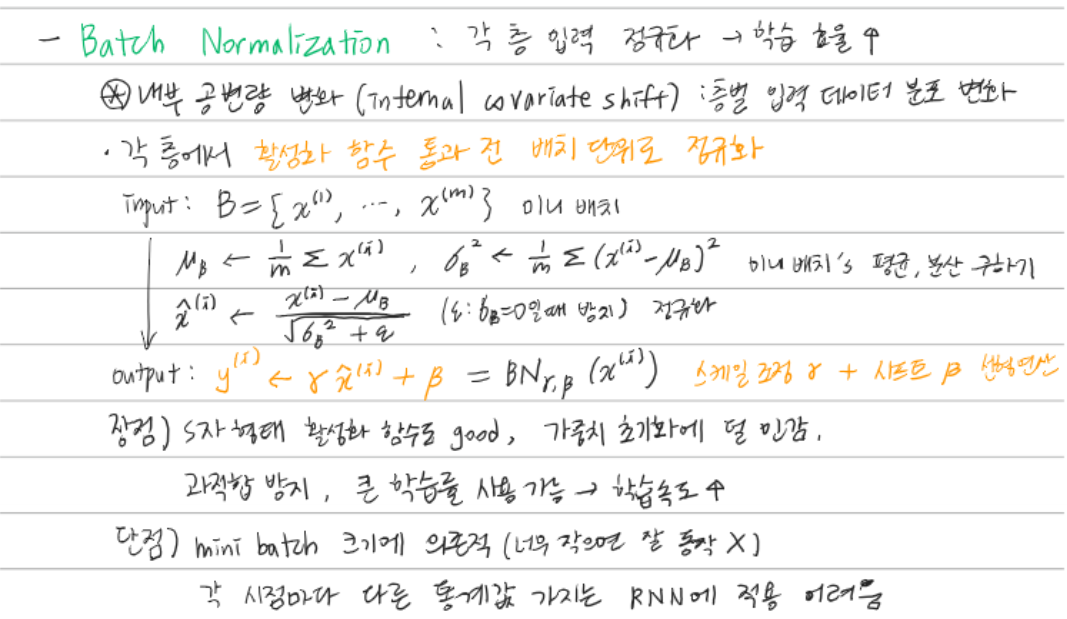 - Batch Normalization : 각 층 입력 정규화 → 학습 효율 ↑
⊛ 내부 공변량 변화 (internal covariate shift) : 층별 입력 데이터 분포 변화
· 각 층에서 활성화 함수 통과 전 배치 단위로 정규화
input: B = { x^(1), ⋯, x^(m) } 미니 배치
μ_B ← 1/m Σ x^(i) , σ_B^2 ← 1/m Σ (x^(i) - μ_B)^2 미니 배치's 평균, 분산 구하기
x̂^(i) ← (x^(i) - μ_B) / √(σ_B^2 + ε) (ε: σ_B=0일때 방지) 정규화
output: y^(i) ← γ x̂^(i) + β = BN_γ,β (x^(i)) 스케일 조정 γ + 시프트 β 선형연산
장점) S자 형태 활성화 함수도 good, 가중치 초기화에 덜 민감,
과적합 방지, 큰 학습률 사용 가능 → 학습속도 ↑
단점) mini batch 크기에 의존적 (너무 작으면 잘 동작 X)
각 시점마다 다른 통계값 가지는 RNN에 적용 어려움